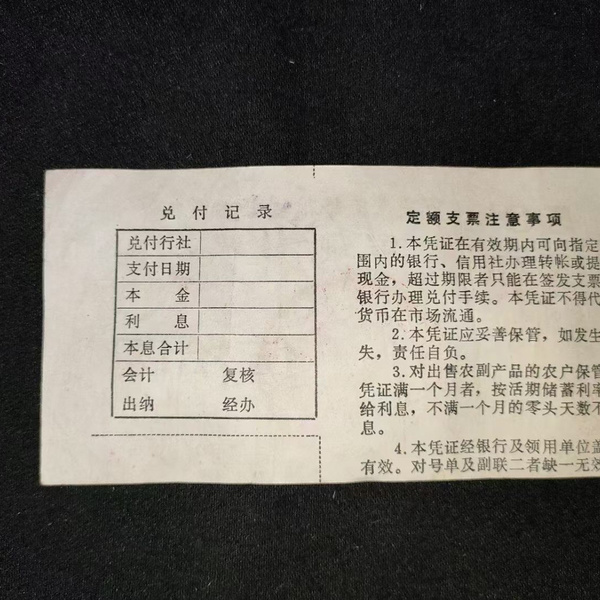 兑付记录
兑付行社
支付日期
本金
利息
本息合计
会计 复核
出纳 经办
定额支票注意事项
1.本凭证在有效期内可向指定
围内的银行、信用社办理转帐或提
现金，超过期限者只能在签发支票
银行办理兑付手续。本凭证不得代
货币在市场流通。
2.本凭证应妥善保管，如发生
失，责任自负。
3.对出售农副产品的农户保管
凭证满一个月者，按活期储蓄利率
给利息，不满一个月的零头天数不
息。
4.本凭证经银行及领用单位盖
有效。对号单及副联二者缺一无效